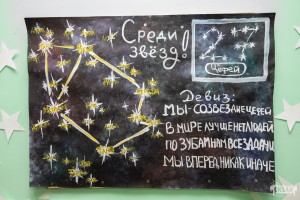 Среди
звёзд!
Через
Девиз:
МЫ-СОЗВЕЗДИЕ ЦЕЙ
В МИРЕ ЛУЧШЕ НЕТ ЛЮДЕЙ
ПО ЗУБАМ НАМ ВСЕ ЗАДАЧИ
МЫ ВПЕРЕД, НИКАК ИНАЧЕ